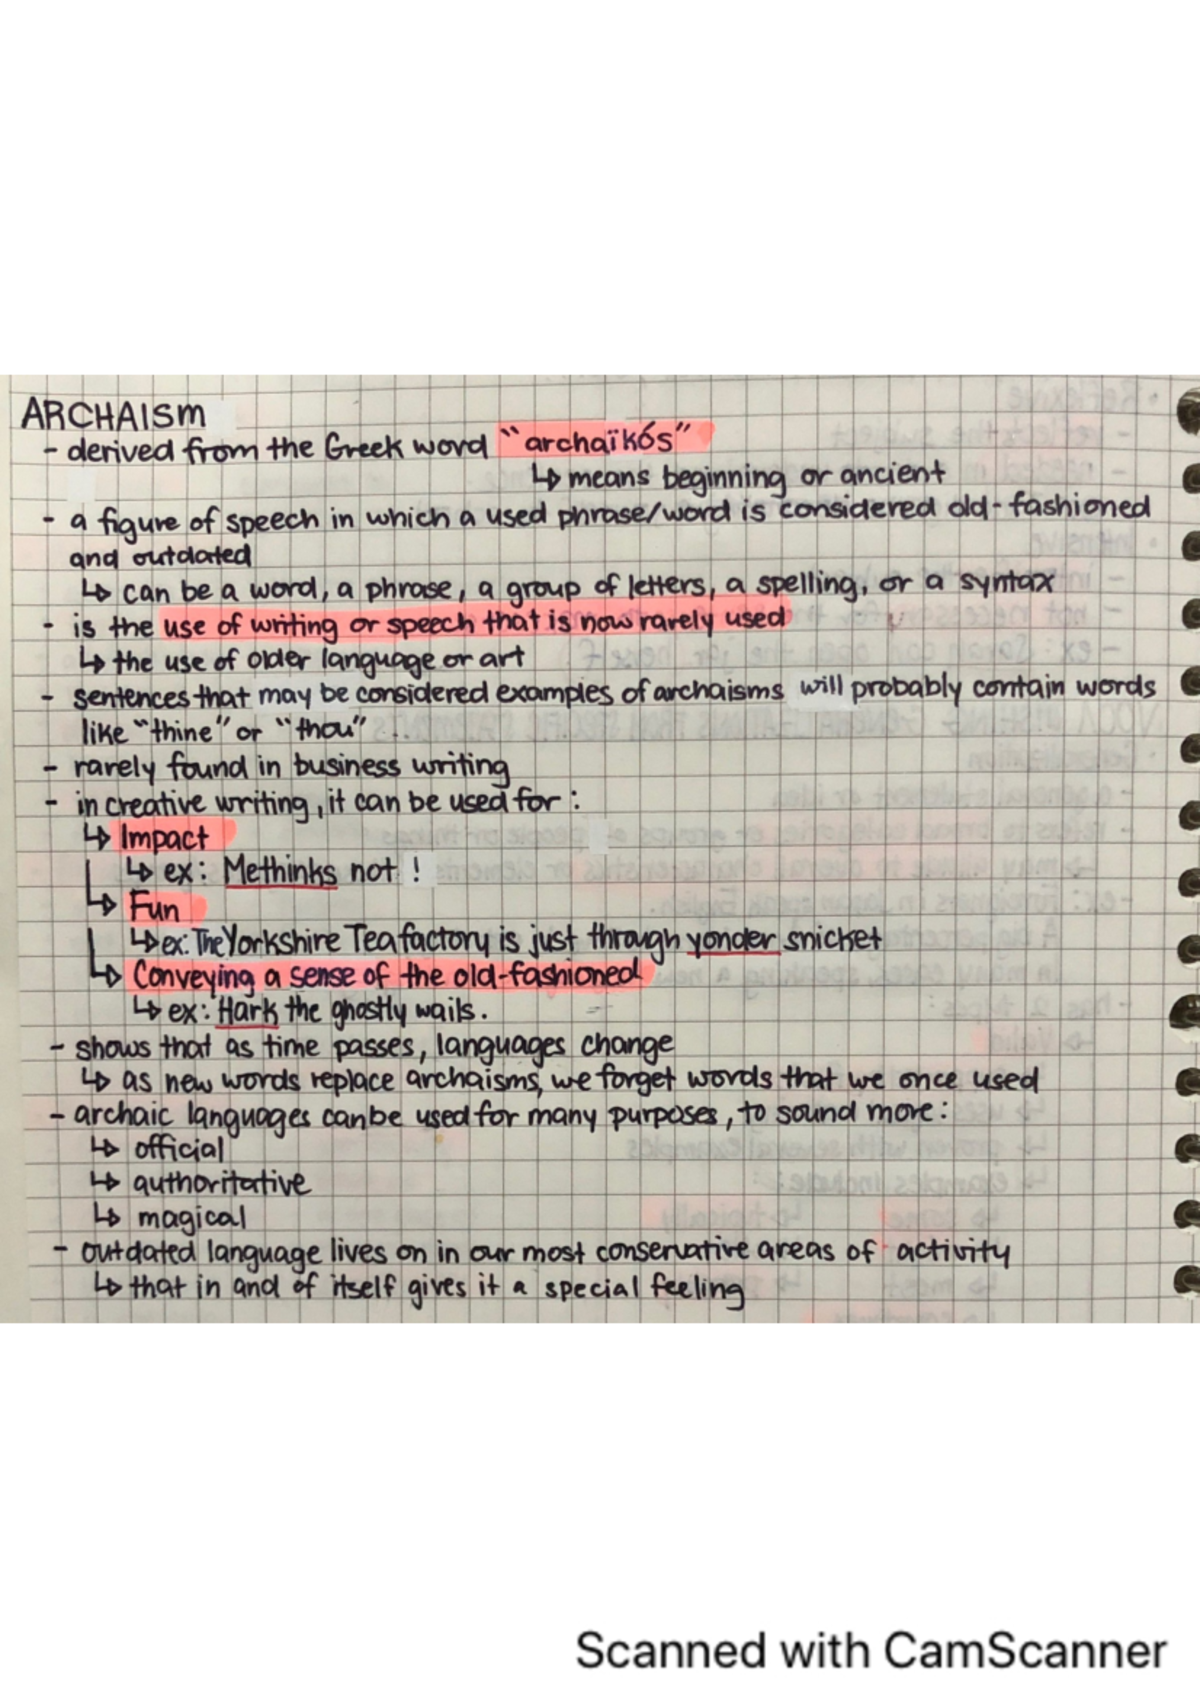 ARCHAISM
- derived from the Greek word “archaïkós”
↳ means beginning or ancient
- a figure of speech in which a used phrase/word is considered old-fashioned
and outdated
↳ can be a word, a phrase, a group of letters, a spelling, or a syntax
- is the use of writing or speech that is now rarely used
↳ the use of older language or art
- sentences that may be considered examples of archaisms will probably contain words
like “thine” or “thou”
- rarely found in business writing
- in creative writing, it can be used for:
↳ Impact
↳ ex: Methinks not!
↳ Fun
↳ ex: The Yorkshire Tea factory is just through yonder snicket
↳ Conveying a sense of the old-fashioned
↳ ex: Hark the ghostly wails.
- shows that as time passes, languages change
↳ as new words replace archaisms, we forget words that we once used
- archaic languages can be used for many purposes, to sound more:
↳ official
↳ authoritative
↳ magical
- outdated language lives on in our most conservative areas of activity
↳ that in and of itself gives it a special feeling
Scanned with CamScanner